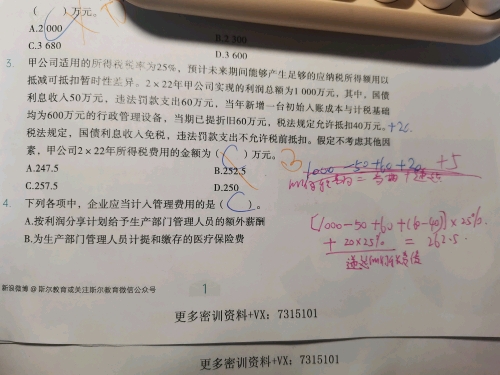 （　）万元。
A.2 000
B.2 300
C.3 680
D.3 600
3. 甲公司适用的所得税税率为25%，预计未来期间能够产生足够的应纳税所得额用以
抵减可抵扣暂时性差异。2×22年甲公司实现的利润总额为1 000万元，其中，国债
利息收入50万元，违法罚款支出60万元，当年新增一台初始入账成本与计税基础
均为600万元的行政管理设备，当期已提折旧60万元，税法规定允许抵扣40万元。+20
税法规定，国债利息收入免税，违法罚款支出不允许税前扣除。假定不考虑其他因
素，甲公司2×22年所得税费用的金额为（　）万元。
A.247.5
B.252.5
C.257.5
D.250
1000-50+60+20 +5
[1000-50+60+(60-40)]×25%
+20×25% = 262.5.
4. 下列各项中，企业应当计入管理费用的是（　）。
A.按利润分享计划给予生产部门管理人员的额外薪酬
B.为生产部门管理人员计提和缴存的医疗保险费
新浪微博@斯尔教育或关注斯尔教育微信公众号
1
更多密训资料+VX：7315101
更多密训资料+VX：7315101